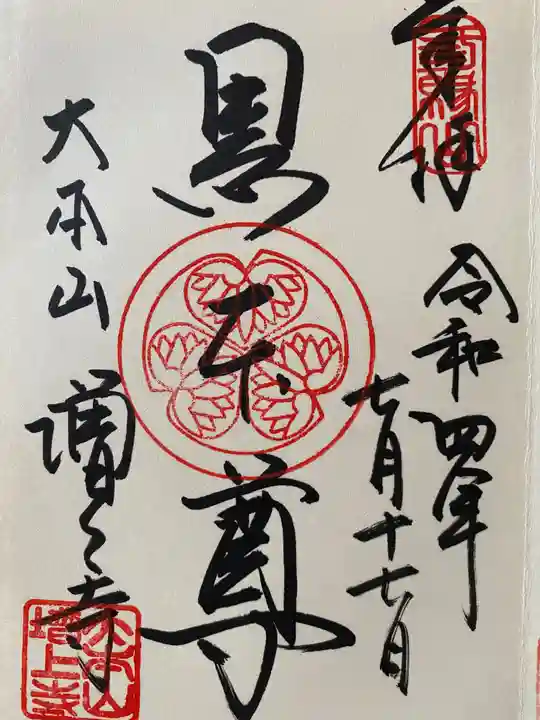 奉拝
令和四年
七月十七日
黒本尊
大本山
増上寺